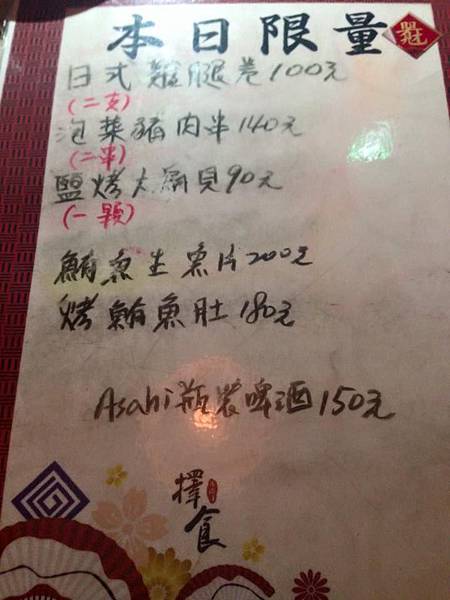 本日限量
日式雞腿卷100元
(二支)
泡菜豬肉串140元
(二串)
鹽烤大扇貝90元
(一顆)
鮪魚生魚片200元
烤鮪魚肚180元
Asahi瓶裝啤酒150元
擇食